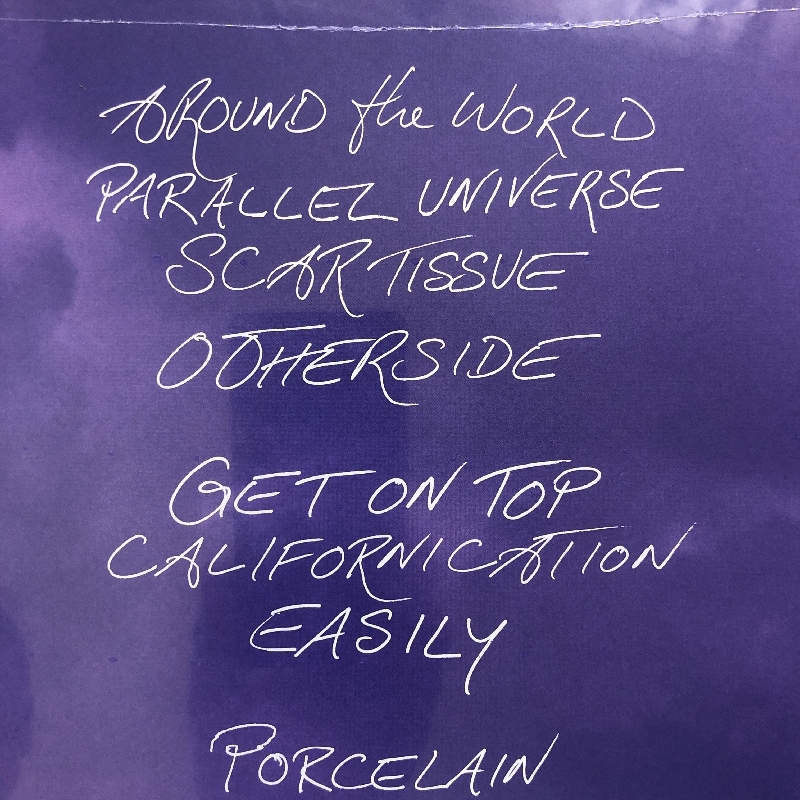 AROUND the WORLD
PARALLEL UNIVERSE
SCAR TISSUE
OTHERSIDE
GET ON TOP
CALIFORNICATION
EASILY
PORCELAIN